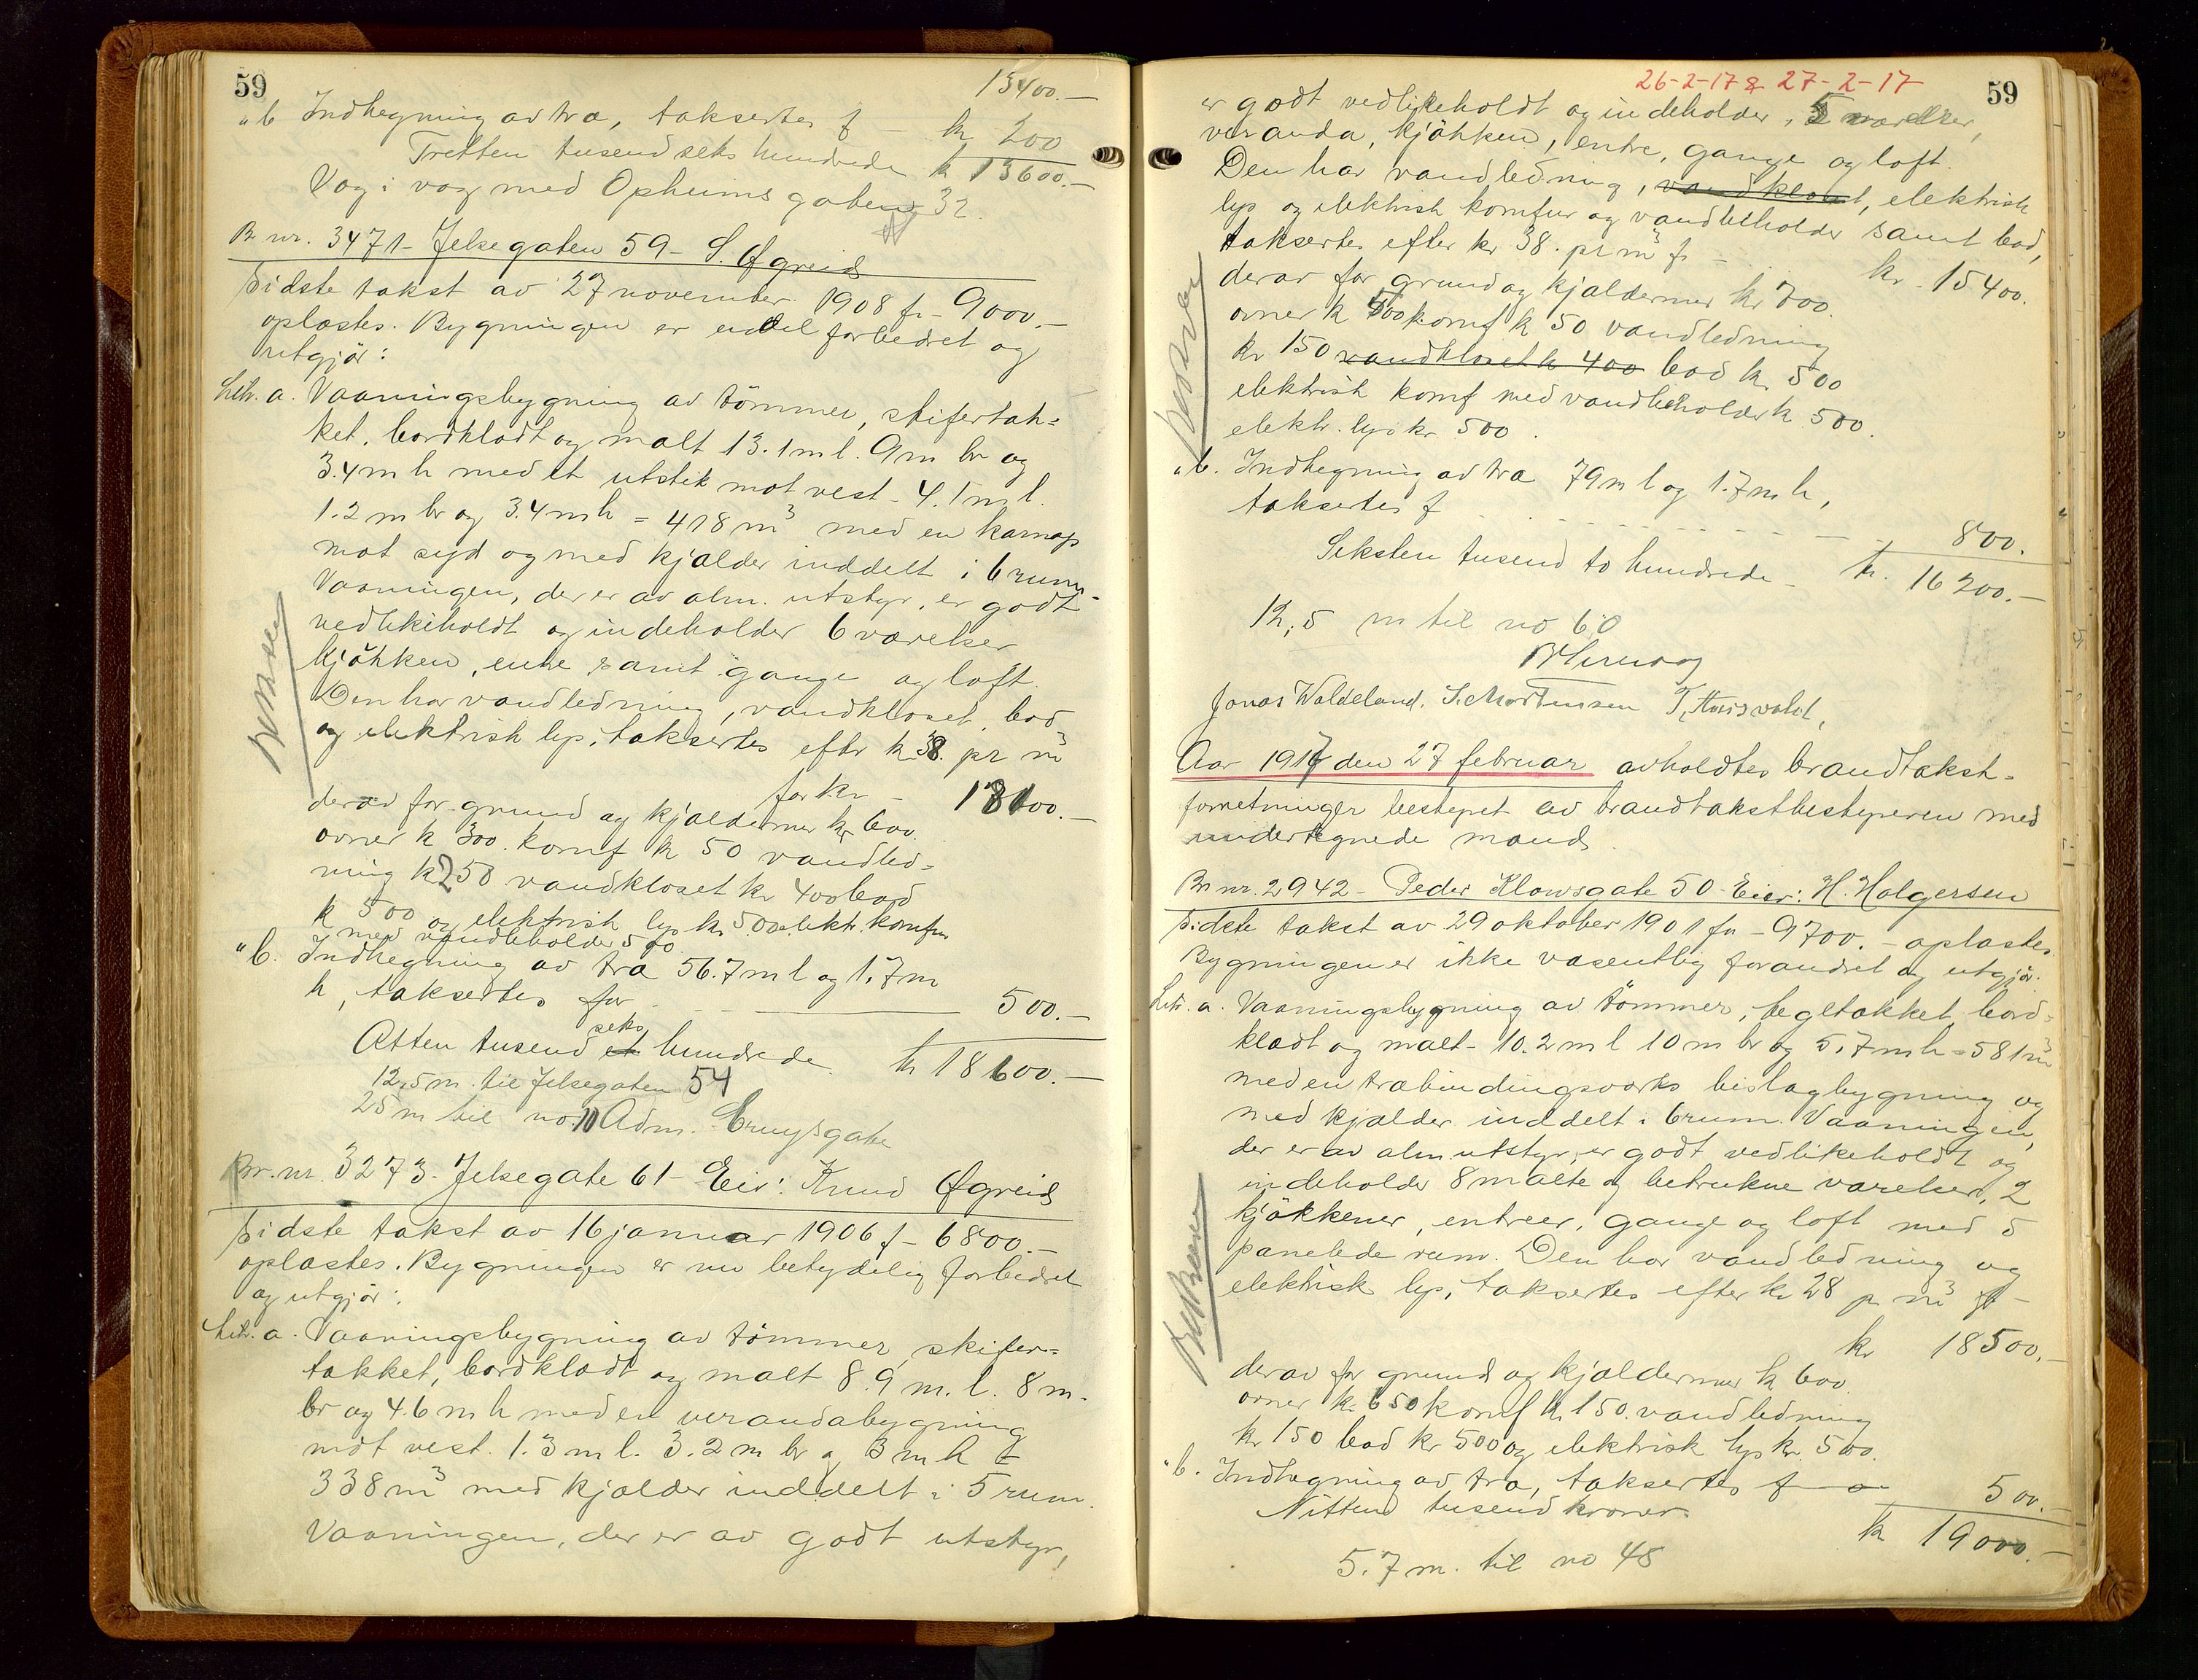 59
13400.-
" b Indhegning av træ, taksertes f - kr 200
Tretten tusend seks hundrede kr 13600.-
Væg i væg med Opheimsgaten 32.
Br nr. 3471 - Jelsegaten 59 - S. Øgreid
Sidste takst av 27 november 1908 fr - 9000.-
oplæstes. Bygningen er endel forbedret og
utgjör:
Litr. a. Vaaningsbygning av tömmer, skifertæk-
ket, bordklædt og malt 13.1 m l. 9 m br og
3.4 m h med et utstik mot vest - 4.1 m l.
1.2 m br og 3.4 m h = 418 m³ med en karnap
mot syd og med kjælder inddelt i 6 rum -
Vaaningen, der er av alm. utstyr, er godt
vedlikeholdt og indeholder 6 værelser
kjökken, entre samt gange og loft
Den har vandledning, vandkloset, bad
og elektrisk lys, taksertes efter kr 38. pr m³
for kr - 18100.-
derav for grund og kjældermur kr 600.
ovner kr 300. komf kr 50 vandled-
ning kr 250 vandkloset kr 400 bad
kr 500 og elektrisk lys kr 500 elektr. komfur
med vandbeholder 500
" b. Indhegning av træ 56.7 m l og 1.7 m
h, taksertes for - 500.-
seks
Atten tusend et hundrede kr 18600.-
12,5 m. til Jelsegaten 54
25 m til no. 10 Adm. Cruysgate
Br. nr. 3273. Jelsegate 61 - Eier: Knud Øgreid
Sidste takst av 16 januar 1906 f - 6800.-
oplæstes. Bygningen er nu betydelig forbedret
og utgjör:
Litr. a. Vaaningsbygning av tömmer, skifer-
tækket, bordklædt og malt 8.9 m. l. 8 m.
br og 4.6 m h med en verandabygning
mot vest. 1.3 m l. 3.2 m br og 3 m h =
338 m³ med kjælder inddelt i 5 rum.
Vaaningen, der er av godt utstyr,
26-2-17 & 27-2-17
59
er godt vedlikeholdt og indeholder, 5 værelser,
veranda, kjökken, entre, gange og loft.
Den har vandledning, vandkloset, elektrisk
lys og elektrisk komfur og vandbeholder samt bad,
taksertes efter kr 38. pr m³ fr - kr - 15400.
derav for grund og kjældermur kr 700.
ovner kr 500 komf kr 50 vandledning
kr 150 vandkloset kr 400 bad kr. 500
elektrisk komf med vandbeholder kr 500.
elektr. lys kr 500.
" b. Indhegning av træ 79 m l og 1.7 m h,
taksertes f - 800.
Seksten tusend to hundrede - kr. 16200.-
12,5 m til no 60
Jonas Waldeland. S. Mortensen T. Auswald,
Aar 1917 den 27 februar avholdtes brandtakst-
forretninger bestyret av brandtakstbestyreren med
undertegnede mænd.
Br nr. 2942 - Peder Klowsgate 50 - Eier: H. Holgersen
Sidste takst av 29 oktober 1901 fr - 9700.- oplæstes
Bygningen er ikke væsentlig forandret og utgjör:
Litr. a. Vaaningsbygning av tömmer, tegltækket, bord-
klædt og malt - 10.2 m l 10 m br og 5.7 m h = 581 m³
med en træbindingsværks bislagbygning og
med kjælder inddelt i 6 rum. Vaaningen,
der er av alm utstyr, er godt vedlikeholdt og
indeholder 8 malte og betrukne værelser, 2
kjökkener, entreer, gange og loft med 5
panelede rum. Den har vandledning og
elektrisk lys, taksertes efter kr 28 pr m³ f -
kr 18500.-
derav for grund og kjældermur kr 600.
ovner kr. 650 komf kr 150. vandledning
kr 150 bad kr 500 og elektrisk lys kr. 500.
" b. Indhegning av træ, taksertes f - 500.-
Nitten tusend kroner. kr 19000.-
5.7 m. til no 48